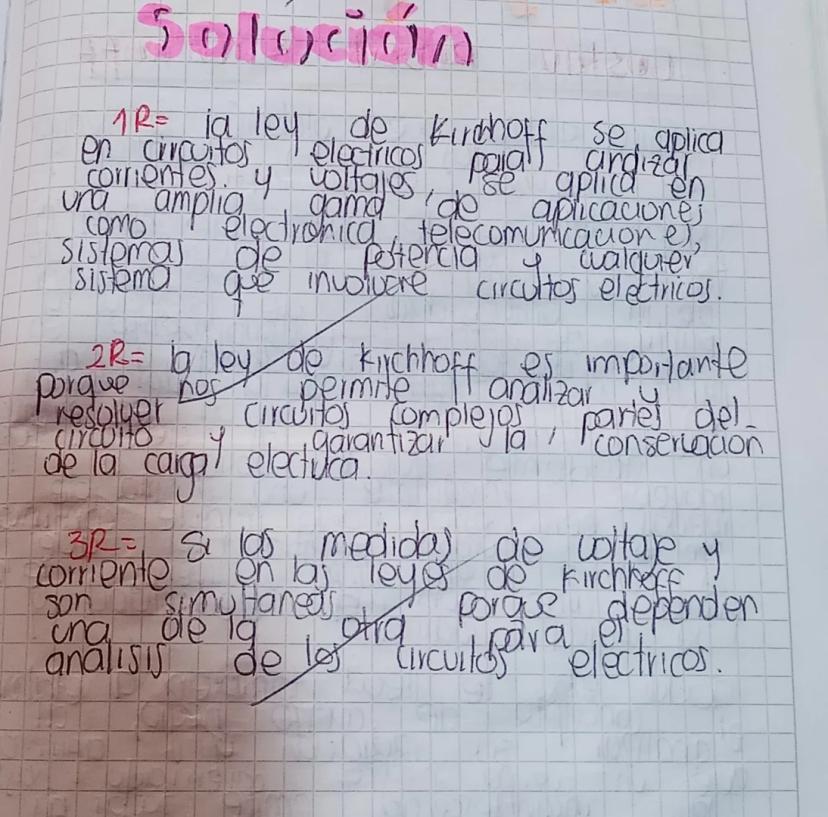 Solución
1R= la ley de Kirchhoff se aplica
en circuitos electricos para analizar
corrientes y voltajes, se aplica en
una amplia gama de aplicaciones
como electronica, telecomunicaciones,
sistemas de potencia y cualquier
sistema que involucre circuitos electricos.
2R= la ley de Kirchhoff es importante
porque nos permite analizar y
resolver circuitos complejos, partes del
circuito y garantizar la conservacion
de la carga electrica.
3R= Si las medidas de voltaje y
corriente en las leyes de Kirchhoff
son simultaneas porque dependen
una de la otra para el
analisis de los circuitos electricos.